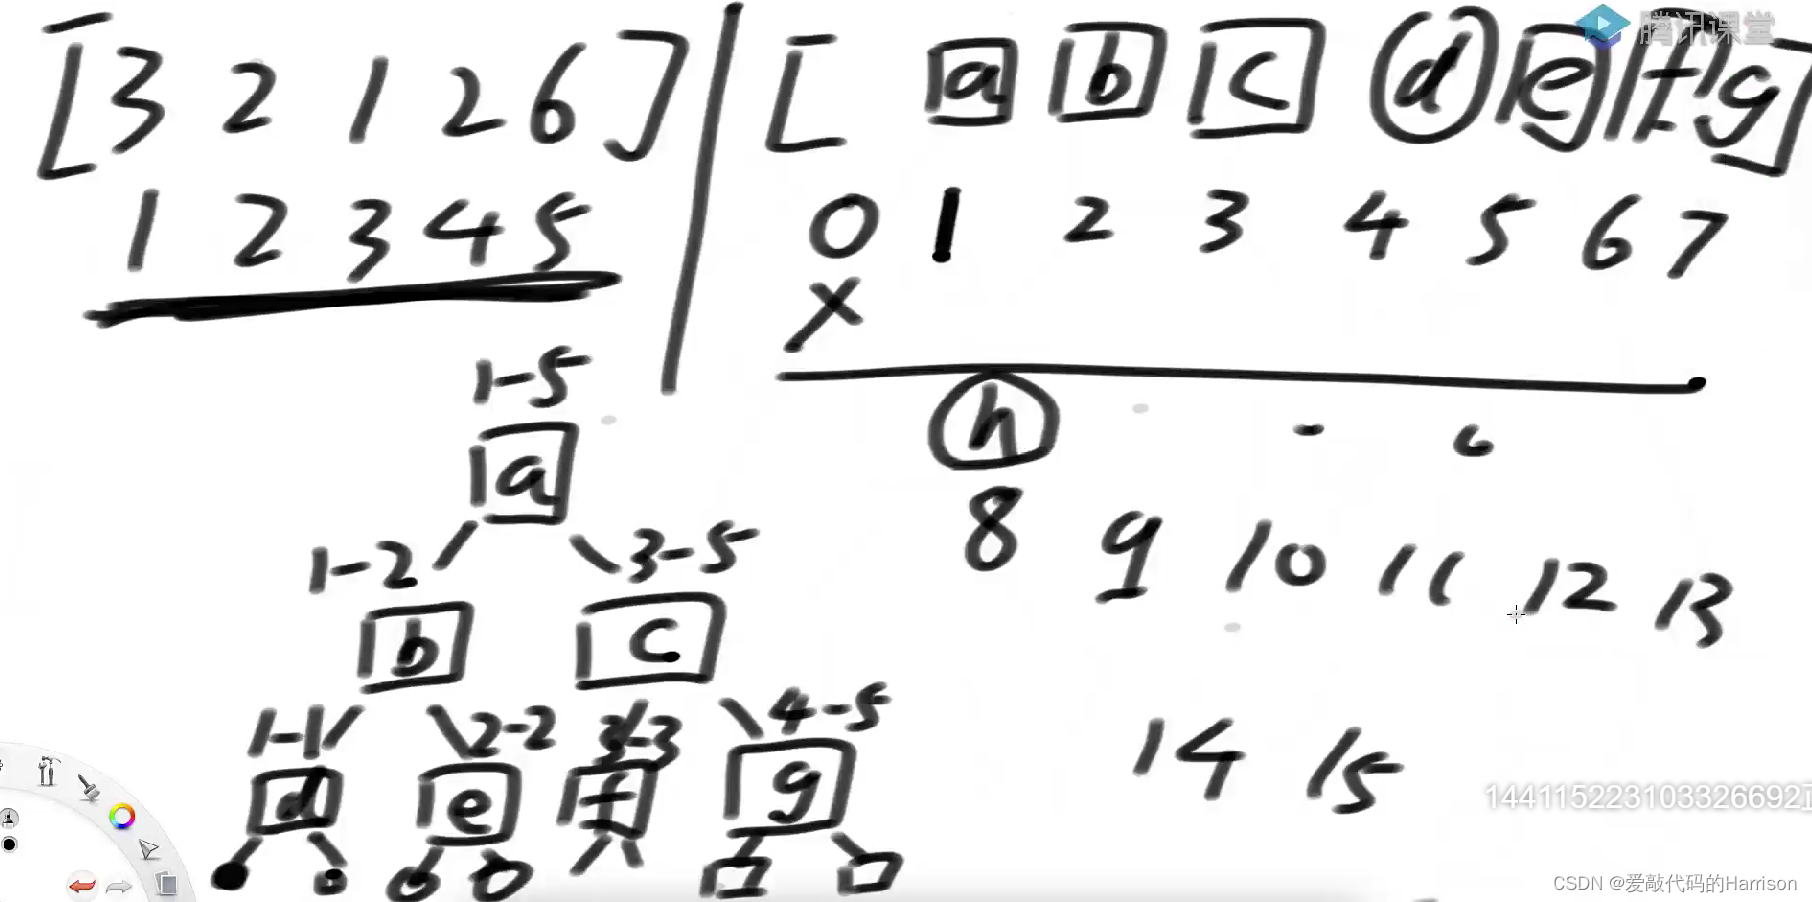 [3 2 1 2 6]
1 2 3 4 5
[ a b c d e f g ]
腾讯课堂
0 1 2 3 4 5 6 7
X
h
8 9 10 11 12 13
14 15
1-5
a
1-2 3-5
b c
1-1 2-2 3-3 4-5
d e f g
144115223103326692正
CSDN @爱敲代码的Harrison